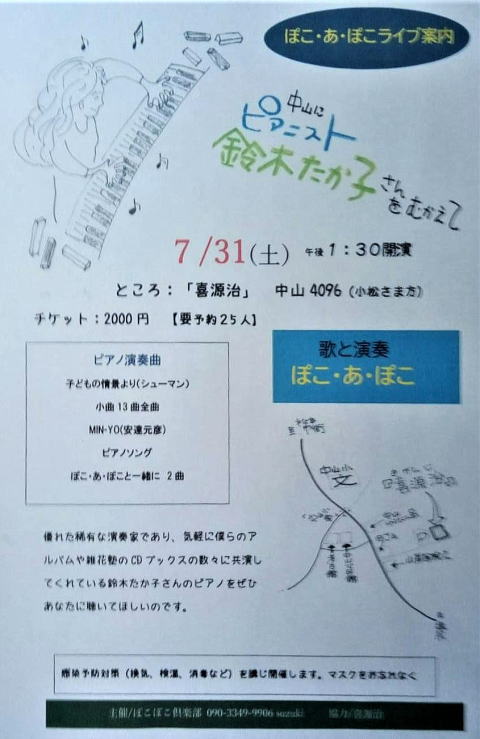 ぽこ・あ・ぽこライブ案内
中山に
ピアニスト
鈴木たか子さん
をむかえて
7/31(土) 午後1:30開演
ところ：「喜源治」 中山4096 (小松さま方)
チケット：2000円 【要予約25人】
ピアノ演奏曲
子どもの情景より(シューマン)
小曲13曲全曲
MIN-YO(安達元彦)
ピアノソング
ぽこ・あ・ぽこと一緒に 2曲
歌と演奏
ぽこ・あ・ぽこ
中山小
文
喜源治
優れた稀有な演奏家であり、気軽に僕らのア
ルバムや雑花塾のCDブックスの数々に共演し
てくれている鈴木たか子さんのピアノをぜひ
あなたに聴いてほしいのです。
感染予防対策（換気、検温、消毒など）を講じ開催します。マスクをお忘れなく
主催/ぽこぽこ倶楽部 090-3349-9906 suzuki 協力/喜源治